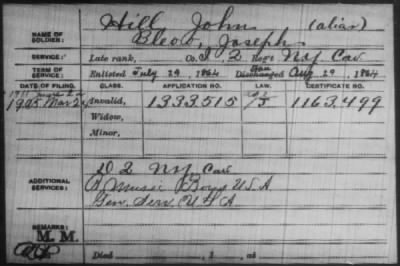 NAME OF SOLDIER:
Hill John (alias)
Bleow, Joseph
SERVICE:
Late rank, Co. I 2 Regt N.Y. Cav
TERM OF SERVICE:
Enlisted July 29, 1864 Discharged Aug 29, 1864
DATE OF FILING. CLASS. APPLICATION NO. LAW. CERTIFICATE NO.
1905 Mar 2 Invalid, 1333515 1163,499
Widow,
Minor,
ADDITIONAL SERVICES:
D 2 N.Y. Cav
Music Boys U.S.A
Gen. Serv. U.S.A
REMARKS:
M. M.
Died , 1 , at